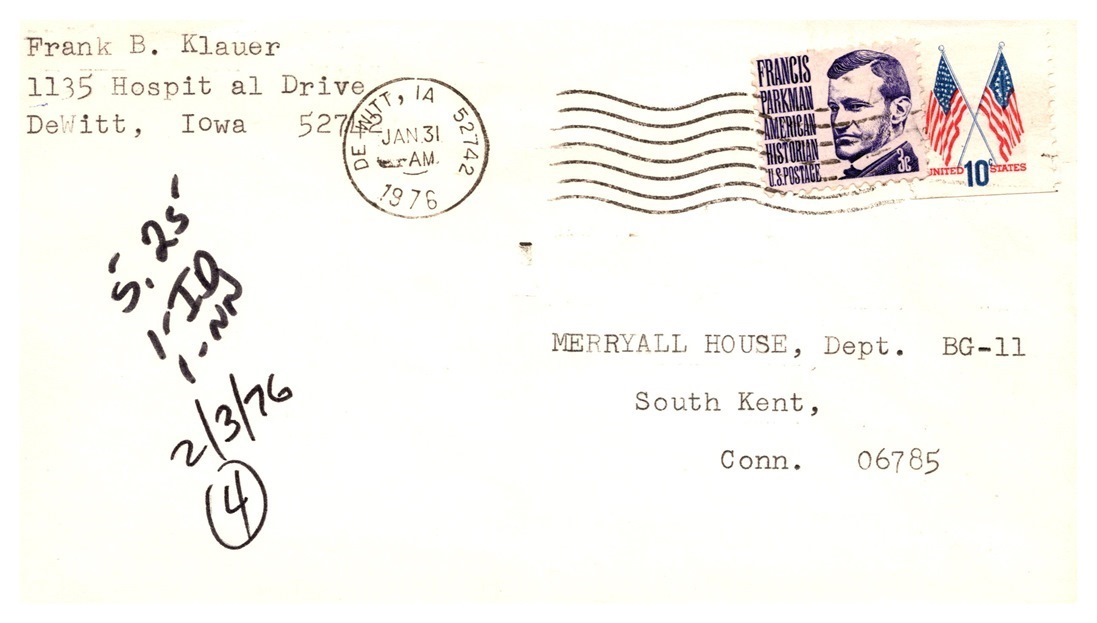 Frank B. Klauer
1135 Hospit al Drive
DeWitt, Iowa 52742
DE WITT, IA 52742
JAN 31
AM
1976
FRANCIS
PARKMAN
AMERICAN
HISTORIAN
U.S. POSTAGE
3c
UNITED 10c STATES
5.25
1-ID
1-NN
2/3/76
4
MERRYALL HOUSE, Dept. BG-11
South Kent,
Conn. 06785